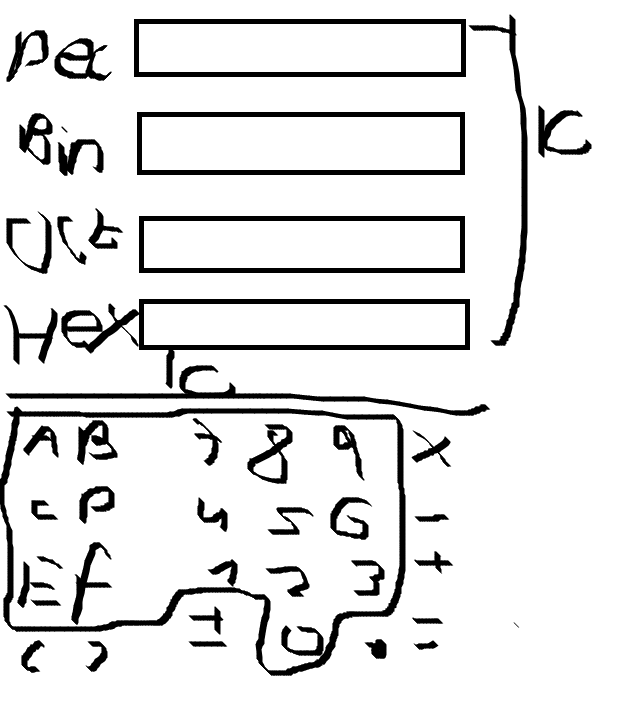 Dec
Bin
IC
Oct
Hex
IC
A B 7 8 9 ×
C D 4 5 6 −
E F 1 2 3 +
( ) ± 0 . =